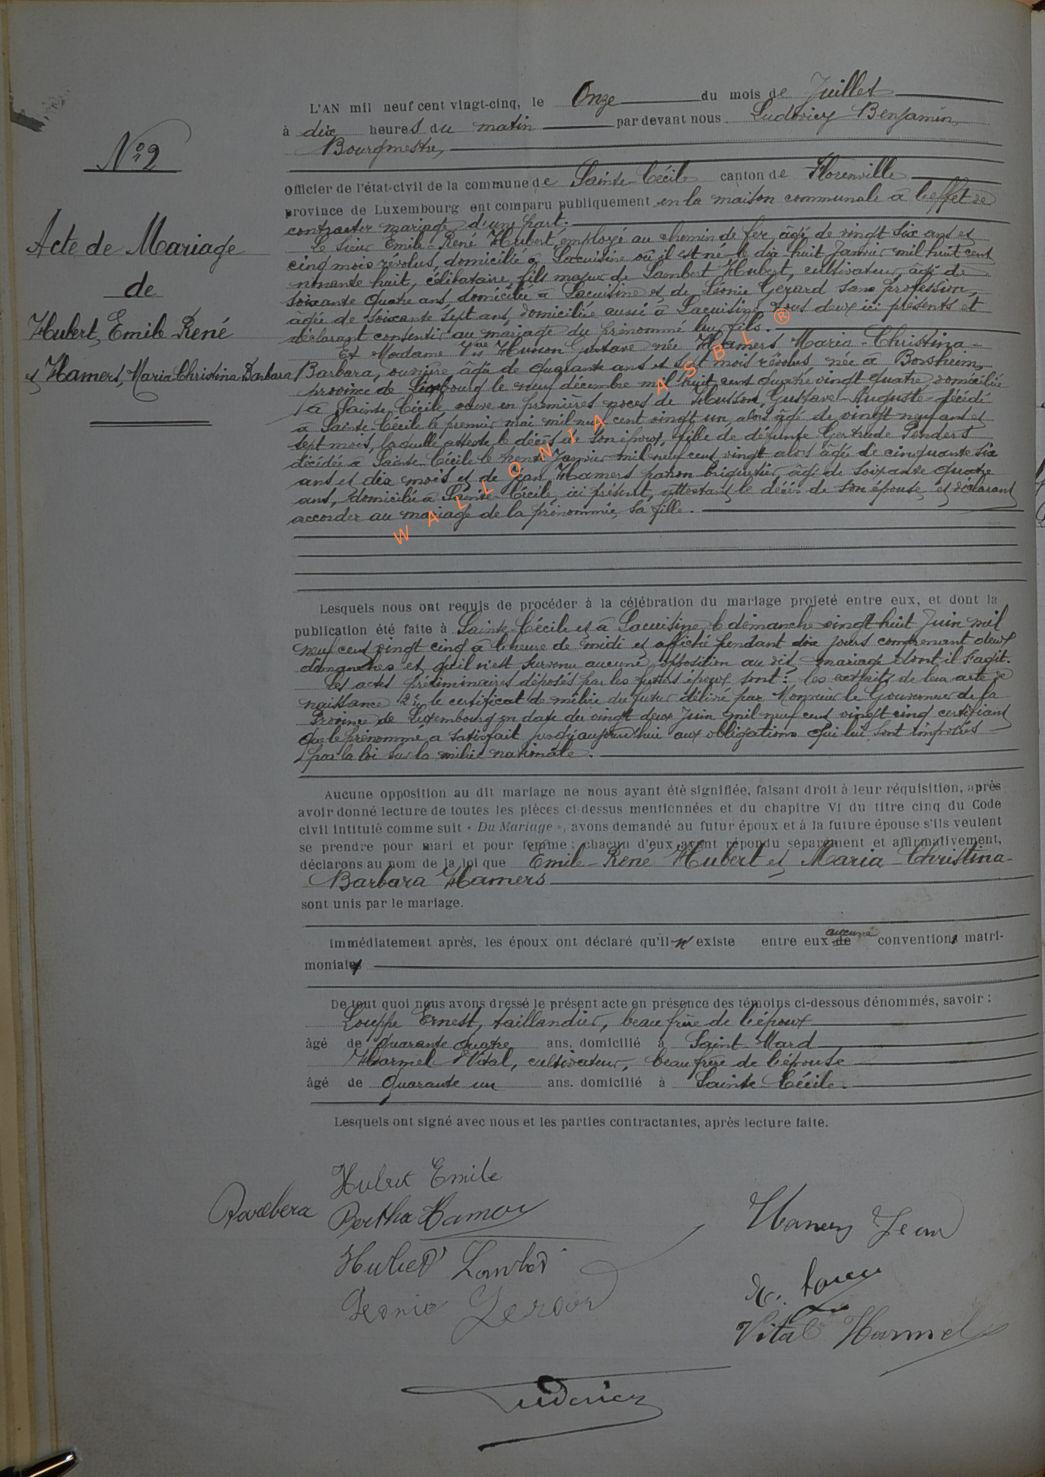 L'AN mil neuf cent vingt-cinq, le Onze du mois de Juillet
à dix heures du matin par devant nous Ludovicy Benjamin,
Bourgmestre,
officier de l'état-civil de la commune de Sainte-Cécile canton de Florenville
province de Luxembourg ont comparu publiquement en la maison communale à l'effet de
contracter mariage d'une part.
Le sieur Emile-René Hubert, employé au chemin de fer, âgé de vingt six ans et
cinq mois révolus, domicilié à Lacuisine où il est né le dix huit Janvier mil huit cent
nonante huit, célibataire, fils majeur de Lambert Hubert, cultivateur, âgé de
soixante quatre ans, domicilié à Lacuisine et de Léonie Gerard sans profession,
âgée de soixante sept ans, domiciliée aussi à Lacuisine, tous deux ici présents et
déclarant consentir au mariage du prénommé leur fils.
Et Madame Vve Husson Gustave née Hamers Maria-Christina-
Barbara, ouvrière, âgée de quarante ans et sept mois révolus, née à Borsheim,
province de le neuf décembre mil huit cent quatre vingt quatre domiciliée
à Sainte Cécile veuve en premières noces de Husson, Gustave-Auguste décédé
à Sainte Cécile le premier mai mil neuf cent vingt un, alors âgé de vingt neuf ans et
sept mois, laquelle atteste le décès de son époux, fille de défunte Gertrude Penders
décédée à Sainte Cécile le Janvier mil neuf cent vingt alors âgée de cinquante six
ans et dix mois et de Jean Hamers patron briquetier, âgé de soixante quatre
ans, domicilié à Sainte Cécile, ici présent, attestant le décès de son épouse, et déclarant
accorder au mariage de la prénommée, sa fille.
WALLONIA ASBL ®
N° 2
Acte de Mariage
de
Hubert, Emile René
et Hamers, Maria Christina Barbara
Lesquels nous ont requis de procéder à la célébration du mariage projeté entre eux, et dont la
publication été faite à Sainte-Cécile et à Lacuisine, le dimanche vingt huit Juin mil
neuf cent vingt cinq à l'heure de midi et affiché pendant dix jours comprenant deux
dimanches et qu'il n'est survenu aucune opposition au dit mariage dont il s'agit.
Les actes préliminaires déposés par les futurs époux sont: les extraits de leur acte de
naissance 2° le certificat de milice du futur délivré par Monsieur le Gouverneur de la
Province de Luxembourg en date du vingt deux Juin mil neuf cent vingt cinq certifiant
que le prénommé a satisfait jusqu'aujourd'hui aux obligations qui lui sont imposées
par la loi sur la milice nationale.
Aucune opposition au dit mariage ne nous ayant été signifiée, faisant droit à leur réquisition, après
avoir donné lecture de toutes les pièces ci-dessus mentionnées et du chapitre VI du titre cinq du Code
civil intitulé comme suit « Du Mariage », avons demandé au futur époux et à la future épouse s'ils veulent
se prendre pour mari et pour femme : chacun d'eux ayant répondu séparément et affirmativement,
déclarons au nom de la loi que Emile-René Hubert et Maria-Christina-
Barbara Hamers
sont unis par le mariage.
Immédiatement après, les époux ont déclaré qu'il n'existe entre eux de aucune convention matri-
moniale
De tout quoi nous avons dressé le présent acte en présence des témoins ci-dessous dénommés, savoir :
Louppe Ernest, taillandier, beau frère de l'époux
âgé de quarante quatre ans, domicilié à Saint-Mard
Harmel Vital, cultivateur, beau frère de l'épouse
âgé de quarante un ans, domicilié à Sainte-Cécile.
Lesquels ont signé avec nous et les parties contractantes, après lecture faite.
Hubert Emile
Bertha Hamers
Hamers Jean
Hubert Lambert
Leonie Gerard
Vital Harmel
Ludovicy